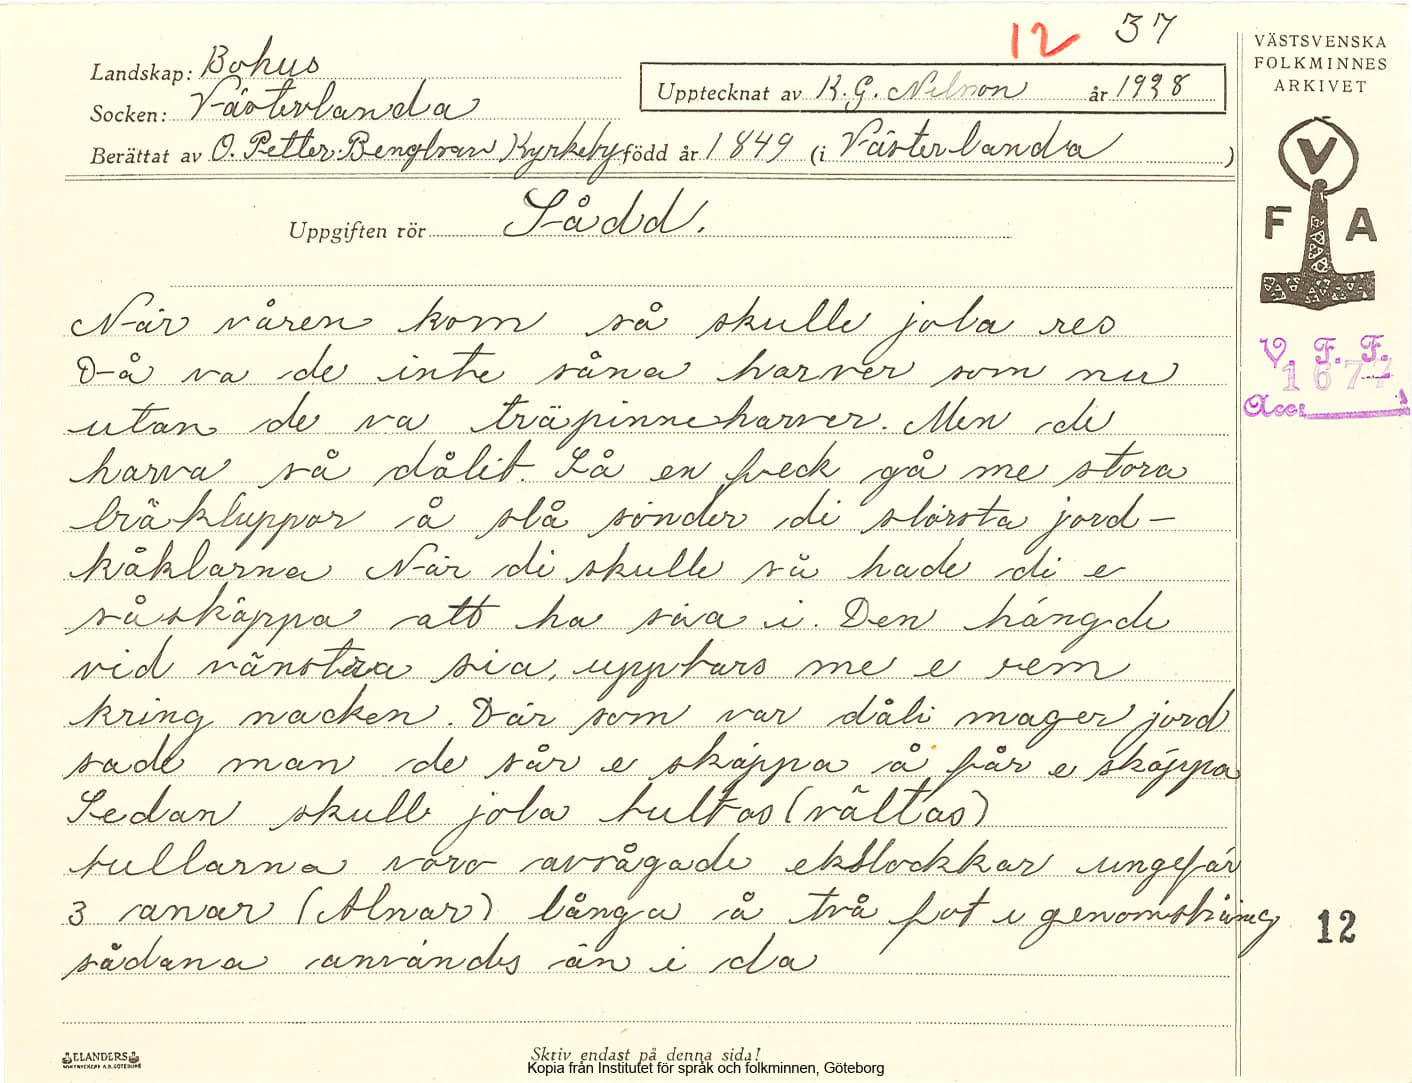 12 37
VÄSTSVENSKA
FOLKMINNES
ARKIVET
Landskap: Bohus
Socken: Västerlanda
Upptecknat av K. G. Nilsson år 1928
Berättat av O. Petter Bengtsson Kyrkeby född år 1849 (i Västerlanda )
V
F A
Uppgiften rör Sådd.
När våren kom så skulle jola res
Då va de inte såna harver som nu
utan de va träpinneharver. Men di
harva så dålit. Så en feck gå me stora
träkluppor å slå sönder di största jord-
kåklarna När di skulle så hade di e
såskäppa att ha säa i. Den hängde
vid vänstra sia, uppbars me e rem
kring nacken. Där som var dåli mager jord
sade man de sår e skäppa å får e skäppa
Sedan skulle jola tultas (vältas)
tullarna voro avsågade ekstockkar ungefär
3 anar (Alnar) långa å två fot i genomskäring
sådana användes än i da
V. F. F.
1677
Acc:
12
ELANDERS
Skriv endast på denna sida!
Kopia från Institutet för språk och folkminnen, Göteborg